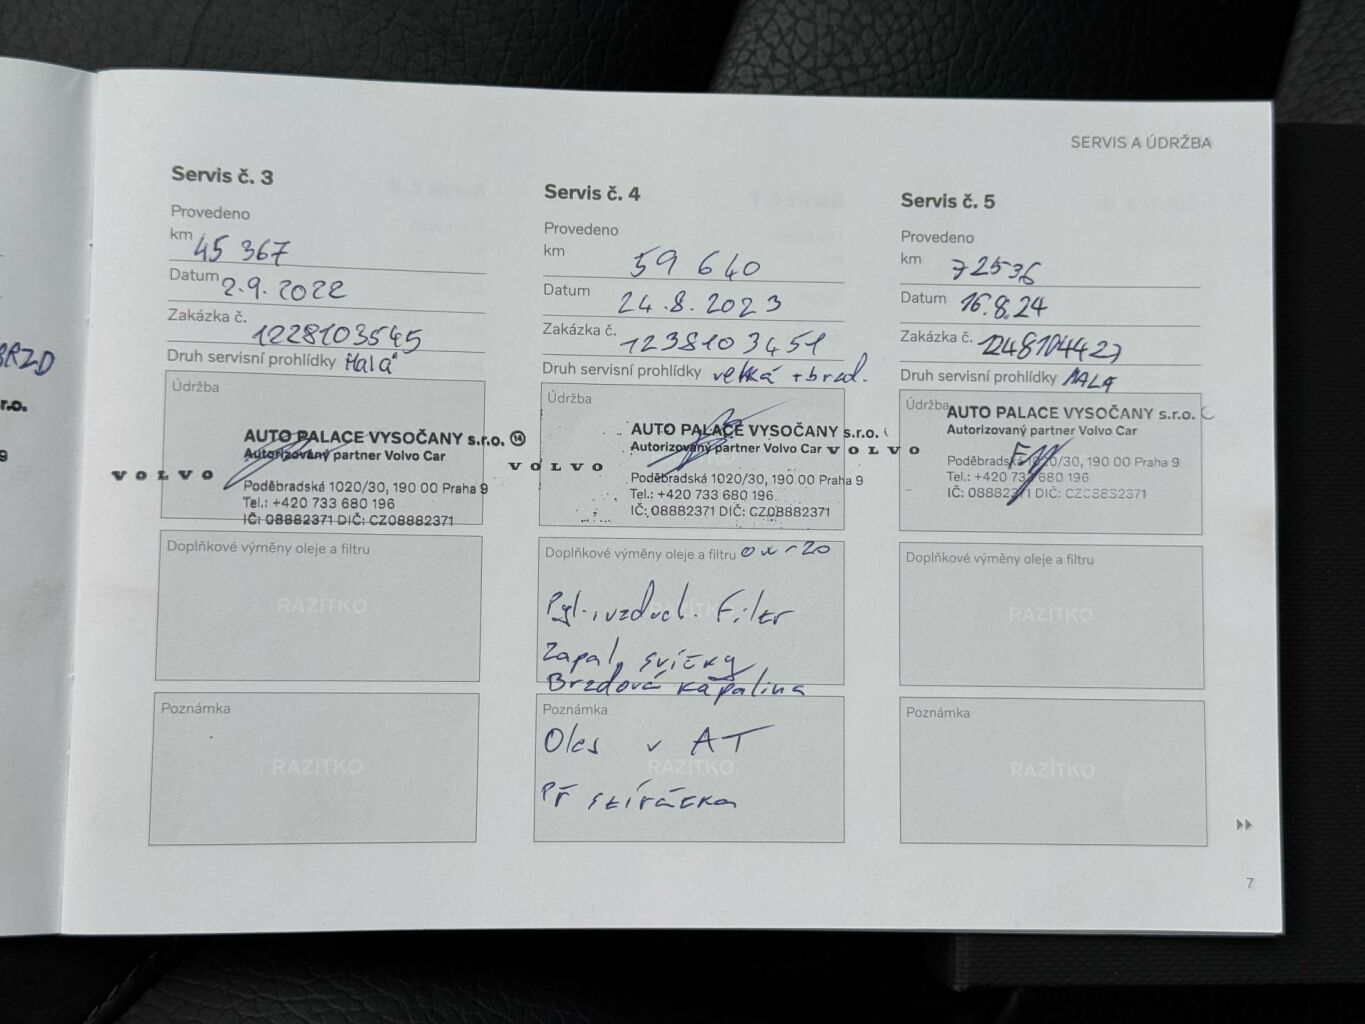 SERVIS A ÚDRŽBA
BRZD
r.o.
9
Servis č. 3
Provedeno
km 45 367
Datum 2.9.2022
Zakázka č. 1228103545
Druh servisní prohlídky Malá
Údržba
AUTO PALACE VYSOČANY s.r.o. 14
Autorizovaný partner Volvo Car
VOLVO
Poděbradská 1020/30, 190 00 Praha 9
Tel.: +420 733 680 196
IČ: 08882371 DIČ: CZ08882371
Doplňkové výměny oleje a filtru
RAZÍTKO
Poznámka
RAZÍTKO
Servis č. 4
Provedeno
km 59 640
Datum 24.8.2023
Zakázka č. 1238103451
Druh servisní prohlídky velká + brzd.
Údržba
AUTO PALACE VYSOČANY s.r.o.
Autorizovaný partner Volvo Car
VOLVO
Poděbradská 1020/30, 190 00 Praha 9
Tel.: +420 733 680 196
IČ: 08882371 DIČ: CZ08882371
Doplňkové výměny oleje a filtru 0W-20
Pyl. i vzduch. Filtr
Zapal. svíčky
Brzdová kapalina
Poznámka
Olej v AT
RAZÍTKO
Př stíráčka
Servis č. 5
Provedeno
km 72536
Datum 16.8.24
Zakázka č. 1248104427
Druh servisní prohlídky MALÁ
Údržba
AUTO PALACE VYSOČANY s.r.o.
Autorizovaný partner Volvo Car
VOLVO
Poděbradská 1020/30, 190 00 Praha 9
Tel.: +420 733 680 196
IČ: 08882371 DIČ: CZ08882371
Doplňkové výměny oleje a filtru
RAZÍTKO
Poznámka
RAZÍTKO
7